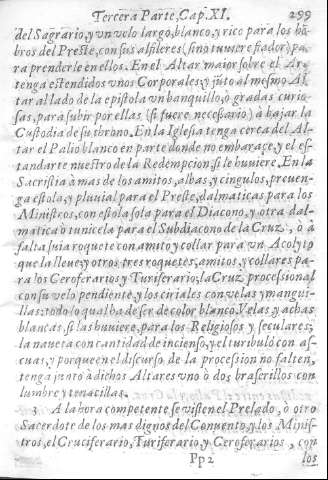 Tercera Parte, Cap. XI. 299
del Sagrario, y vn velo largo, blanco, y rico para los hõ-
bros del Preste, con sus alfileres (sino tuuiere fiador) pa-
ra prenderle en ellos. En el Altar maior sobre el Ara
tenga estendidos vnos Corporales; y jũto al mesmo Al-
tar al lado de la epistola vn banquillo, ò gradas curio-
sas, para subir por ellas (si fuere necessario) à bajar la
Custodia de su throno. En la Iglesia tenga cerca del Al-
tar el Palio blanco en parte donde no embarace, y el es-
tandarte nuestro de la Redempcion, si le huuiere. En la
Sacristia à mas de los amitos, albas, y cingulos, preuen-
ga estola, y pluuial para el Preste, dalmaticas para los
Ministros, con estola sola para el Diacono, y otra dal-
matica ò tunicela para el Subdiacono de la Cruz, ò à
falta suia roquete con amito y collar para vn Acolyto
que la lleue, y otros tres roquetes, amitos, y collares pa-
ra los Ceroferarios y Turiferario; la Cruz processional
con su velo pendiente, y los ciriales con velas y mangui-
llas: todo lo qual ha de ser de color blanco. Velas, y achas
blancas, si las huuiere, para los Religiosos y seculares;
la naueta con cantidad de incienso, y el turibulò con as-
cuas; y porque en el discurso de la procession no falten,
tenga junto à dichos Altares vno ò dos braserillos con
lumbre y tenacillas.
3 A la hora competente se visten el Prelado, ò otro
Sacerdote de los mas dignos del Conuento, y los Minis-
tros, el Cruciferario, Turiferario, y Ceroferarios, con
Pp2 los